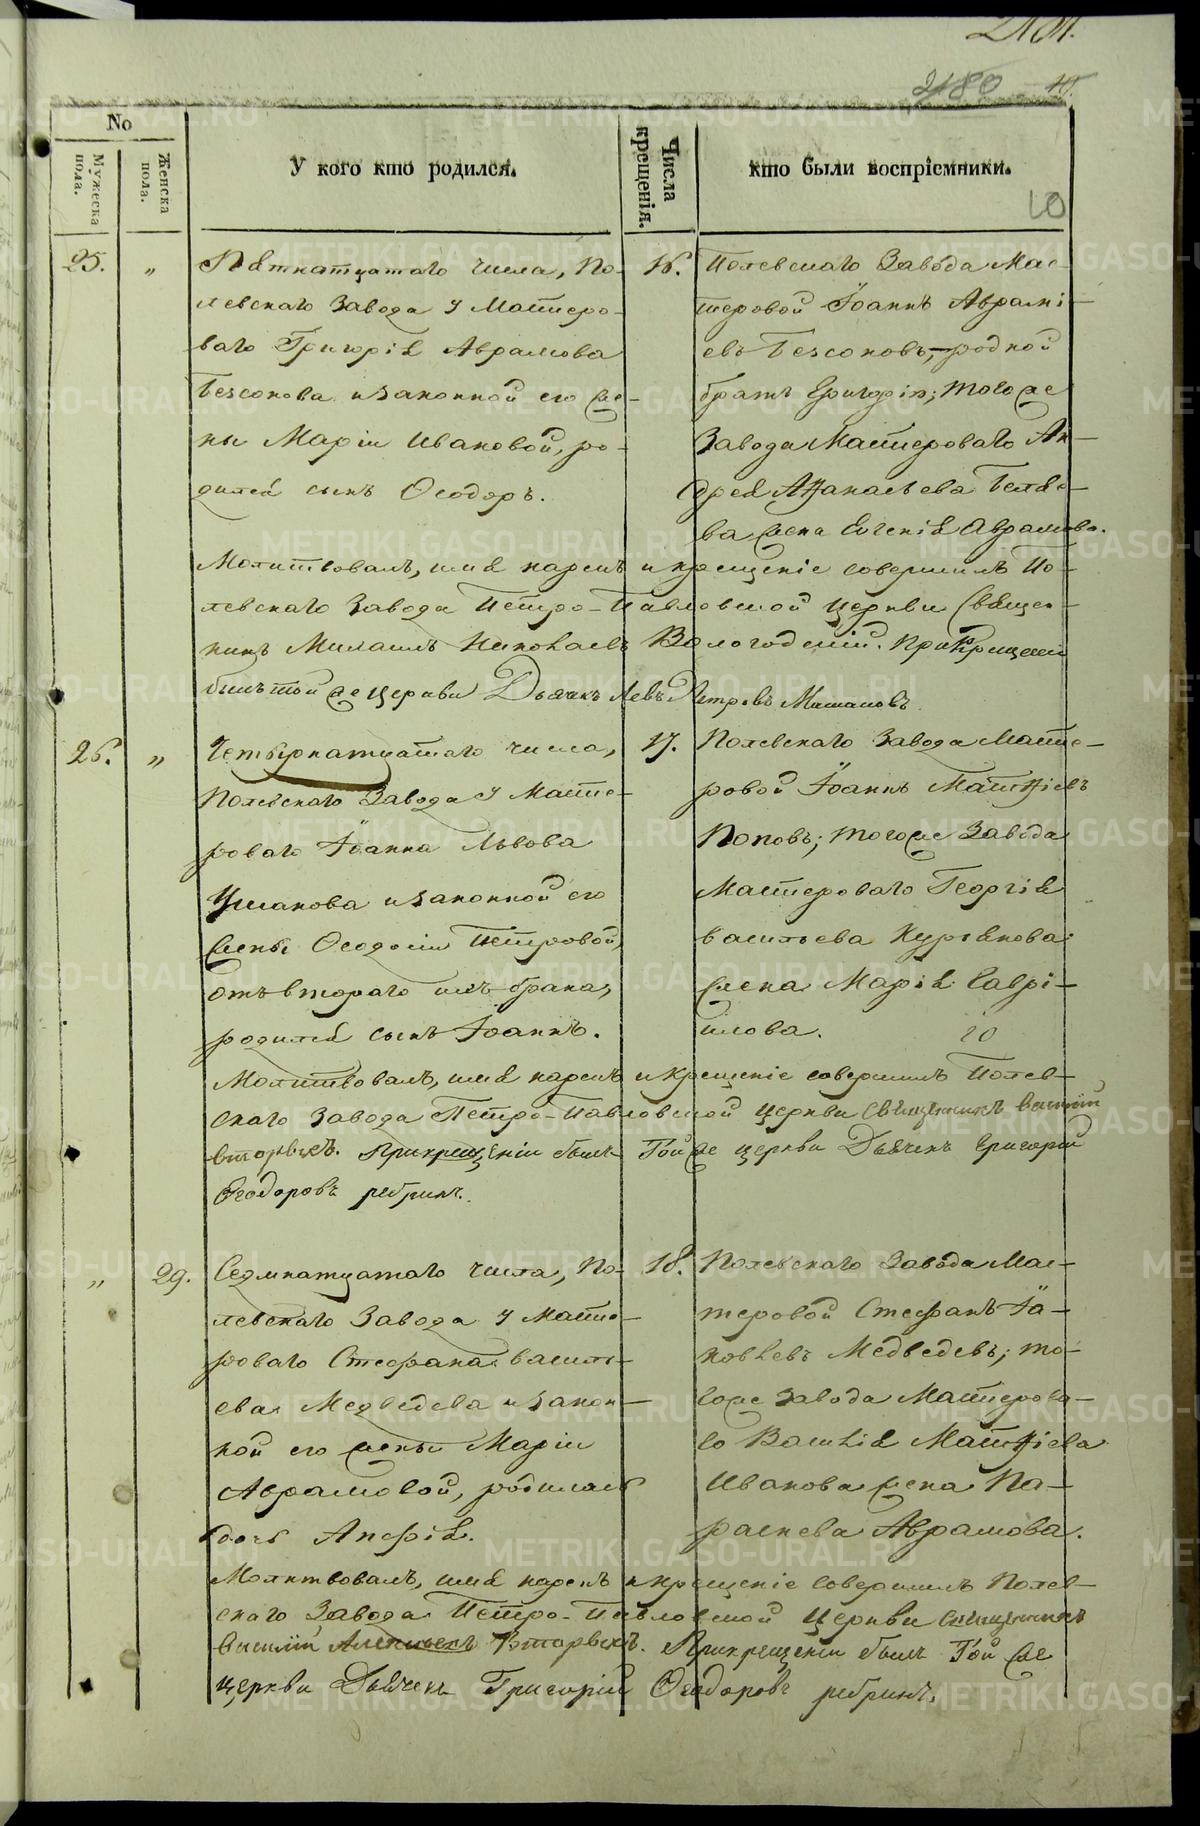 2181.
2180
No
Мужеска пола.
Женска пола.
У кого кто родился.
Числа крещенія.
кто были воспріемники.
10
25. „ Пятнатцатаго числа, По-
левскаго Завода у Мастеро-
ваго Григорія Аврамова
Безсонова и законной его же-
ны Маріи Ивановой, ро-
дился сынъ Ѳеодоръ.
16. Полевскаго Завода Мас-
теровой Іоаннъ Авраміевъ
евъ Безсоновъ, родной
братъ Григорія; того же
Завода Мастероваго Ан-
дрея Аѳанасьева Беляе-
ва жена Евгенія Аврамова.
Молитвовалъ, имя нарекъ и крещеніе совершилъ По-
левскаго Завода Петро-Павловской церкви Священ-
никъ Михаилъ Николаевъ Вологодскій. При крещеніи
былъ той же церкви Дьячекъ Левъ Петровъ
26. „ Четырнатцатаго числа,
Полевскаго Завода у Масте-
роваго Іоанна Львова
Ушакова и законной его
жены Ѳеодосіи Петровой,
отъ втораго ихъ брака,
родился сынъ Іоаннъ.
17. Полевскаго Завода Масте-
ровой Іоаннъ Матѳіевъ
Поповъ; того же Завода
Мастероваго Георгія
Васильева
жена Марія Гаврі-
илова.
10
Молитвовалъ, имя нарекъ и крещеніе совершилъ Полев-
скаго Завода Петро-Павловской церкви священникъ Василій
Вторыхъ. При крещеніи былъ Той же церкви Дьячекъ Григорій
Ѳеодоровъ Ребринъ.
„ 29. Седмнатцатаго числа, По-
левскаго Завода у Масте-
роваго Стефана Василь-
ева Медведева и закон-
ной его жены Маріи
Аврамовой, родилась
дочь Анфія.
18. Полевскаго Завода Мас-
теровой Стефанъ Іа-
ковлевъ Медведевъ; то-
го же Завода Мастерова-
го Василія Матѳіева
Иванова жена Па-
раскева Аврамова.
Молитвовалъ, имя нарекъ и крещеніе совершилъ Полев-
скаго Завода Петро-Павловской церкви священникъ
Василій Алексіевъ Вторыхъ. При крещеніи былъ Той же
церкви Дьячекъ Григорій Ѳеодоровъ Ребринъ.
METRIKI.GASO-URAL.RU